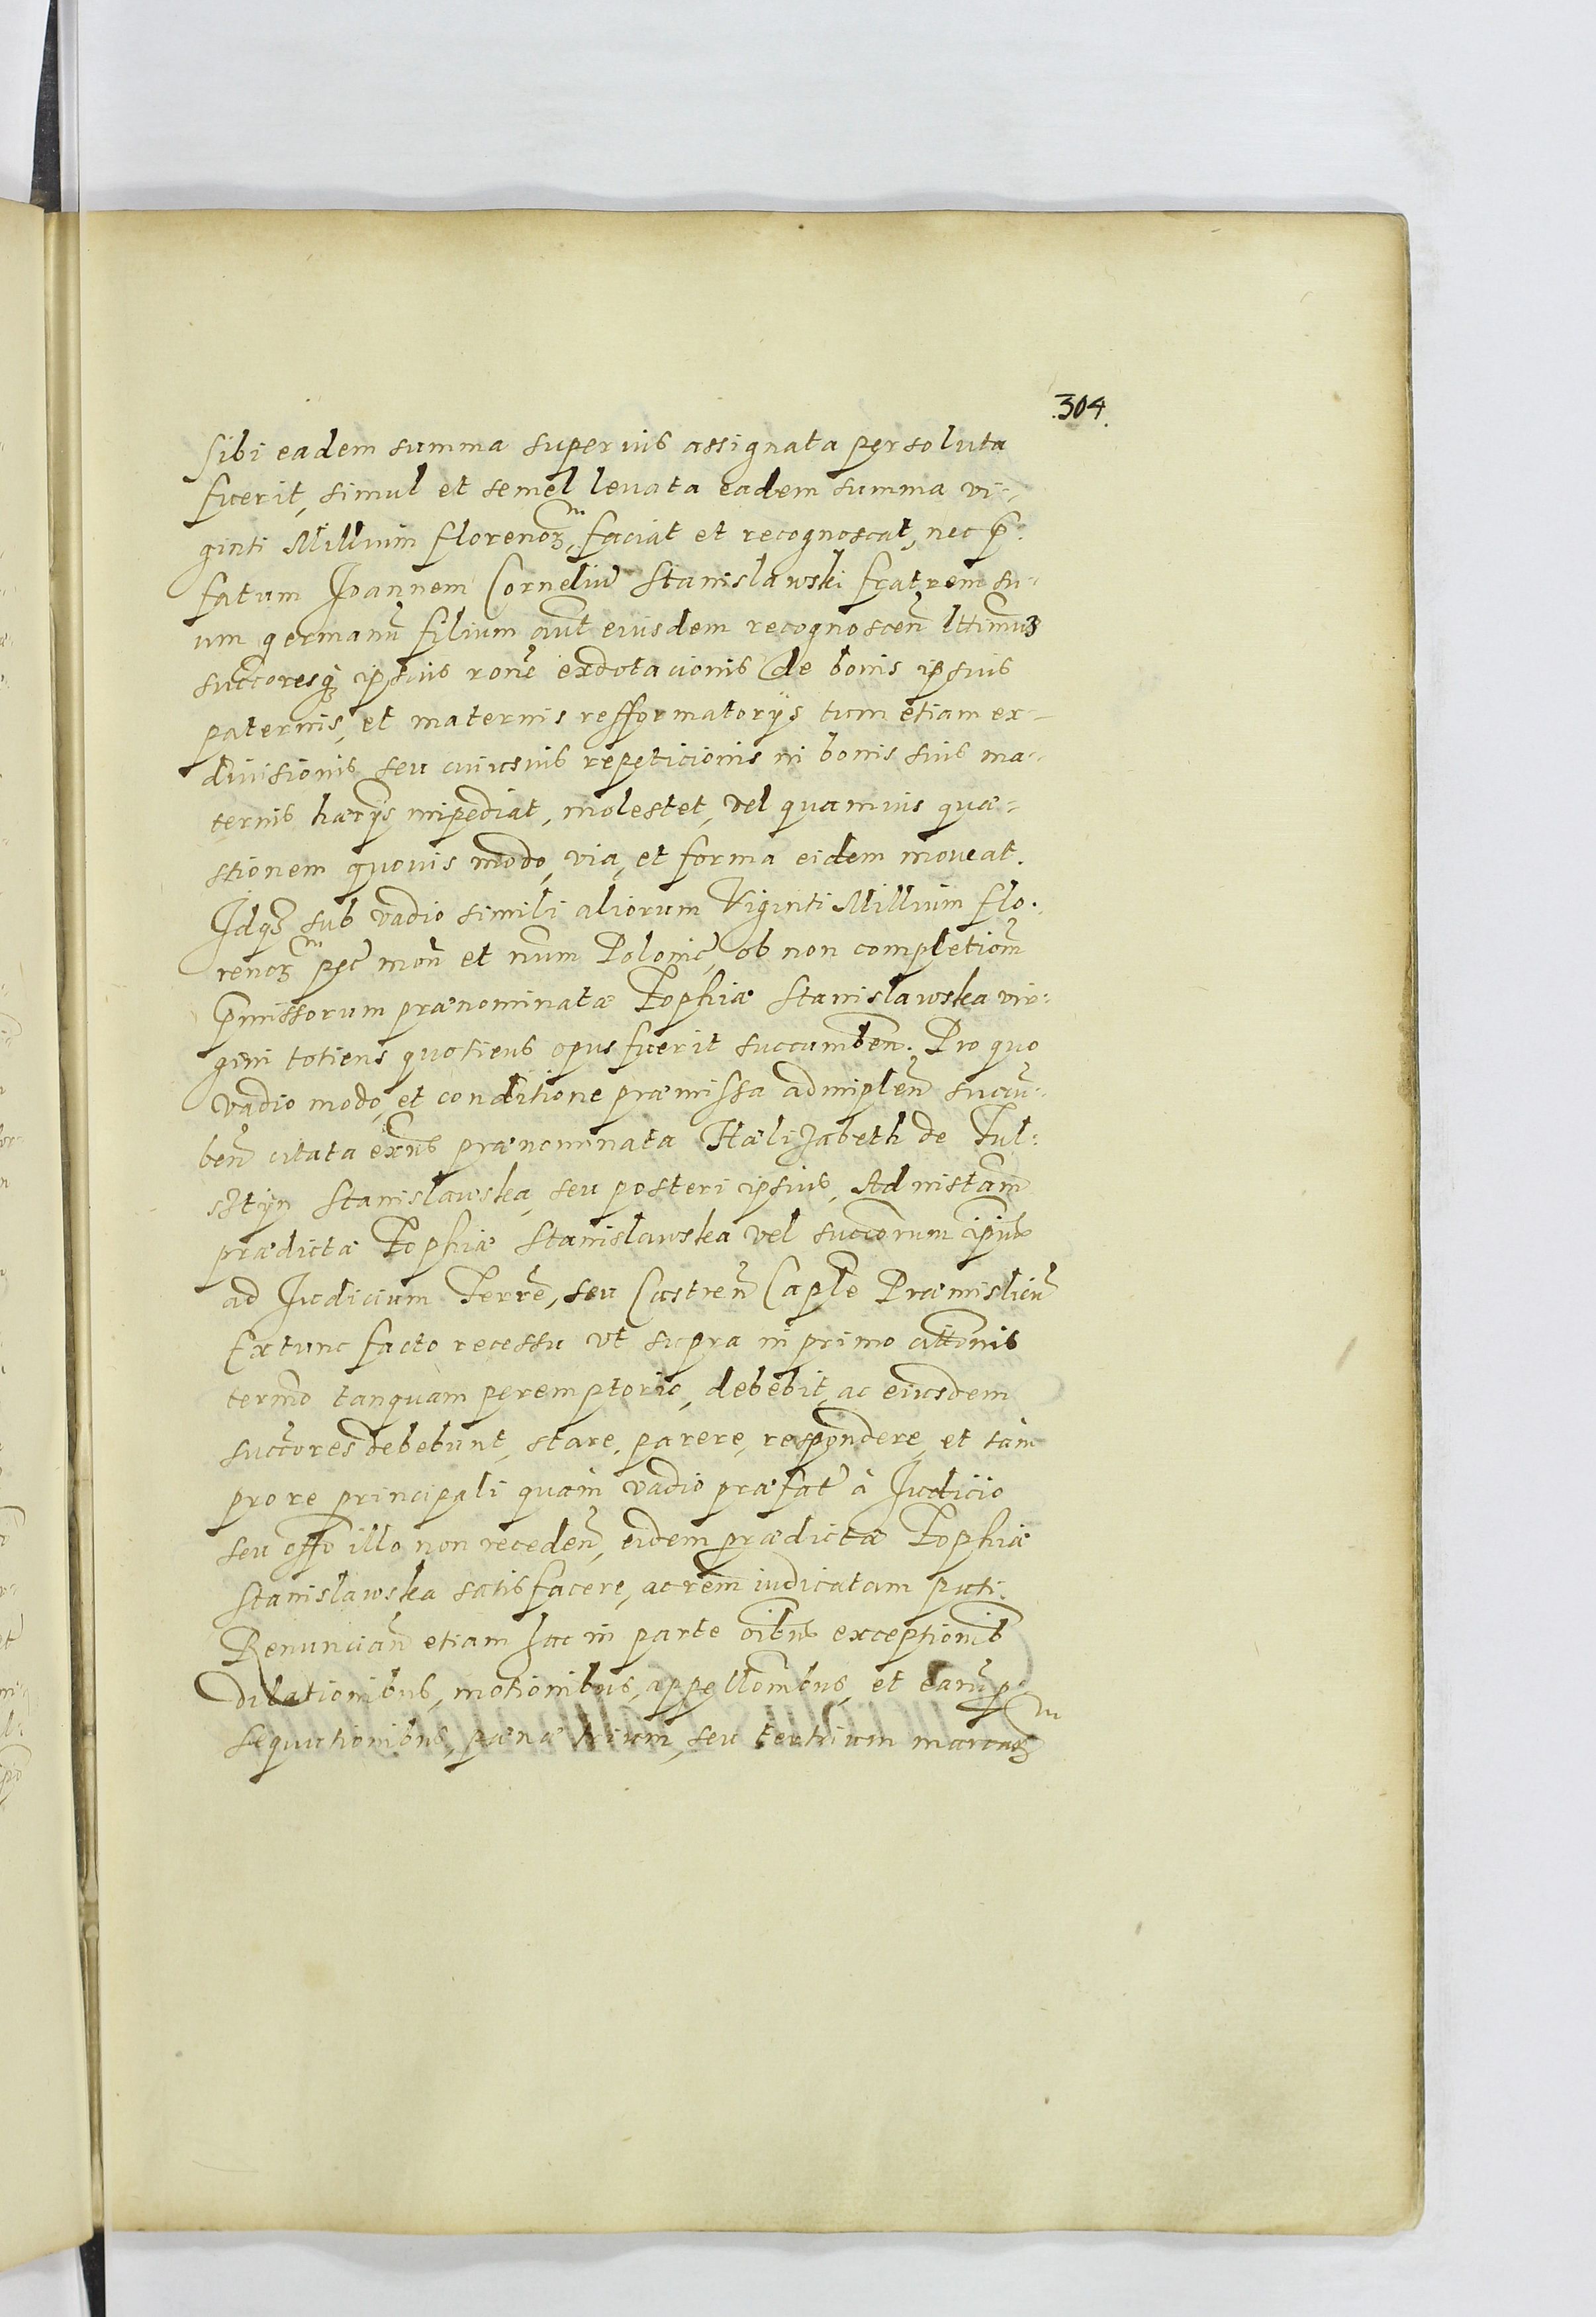 304.
sibi eadem summa superius assignata persoluta
fuerit, simul et semel levata eadem summa vi-
ginti Millium florenoꝝ, faciat et recognoscat, nec p̃-
fatum Joannem Corneliũ Stanislawski fratrem su-
um germanũ filium aũt eiusdem recognoscen̄ lttimuʒ
succoresq̨ ipsius rone exdotacionis de bonis ipsius
paternis, et maternis refformatorys tum etiam ex-
divisionis seu cuiusvis repeticionis in bonis suis ma-
ternis hærys impediat, molestet, vel quamvis quæ-
stionem quovis modo, via, et forma eidem moveat.
Idqȝ sub vadio simili aliorum Viginti Millium flo-
renoꝝ pec̄ mon̄ et num̄ Polonic̄, ob non completiom̄
p̃missorum prænominatæ Zophiæ Stanislawska vir-
gini totiens quotiens opus fuerit succumben̄. Pro quo
vadio modo, et conditione præmissa adimplen̄ succũ-
ben̄ citata exñs prænominata Hælizabeth de Ful-
sztyn Stanislawska, seu posteri ipsius, Ad instam̄
prædictæ Zophiæ Stanislawska vel succorum ip̄ius
ad Judicium Terrē, seu Castren̄ Caplē Præmislien̄
Extunc facto recessu vt supra in primo cittonis
termo tanquam peremptorio, debebit, ac eiusdem
succores debebunt, stare, parere, respondere, et tam
pro re principali quam vadio præfat̄ à Judicio
seu offo illo non receden̄, eidem prædictæ Zophiæ
Stanislawska satisfacere, ac rem iudicatam pati.
Renuncian̄ etiam hac in parte oibus exceptionib
dilationibus, motionibus, appellonibus, et earũ p-
sequutionibus, pœnæ trium, seu tertrium marcaꝝ